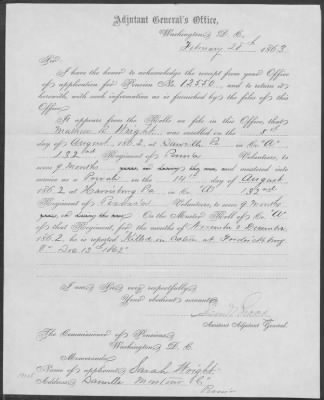 Adjutant General's Office,
Washington, D. C.
February 28th 1863.
Sir:
I have the honor to acknowledge the receipt from your Office
of application for Pension No. 12550, and to return it
herewith, with such information as is furnished by the files of this
Office.
It appears from the Rolls on file in this Office, that
Wright, was enrolled on the 8th
day of August, 1862, at Danville Pa in Co. "A"
132nd Regiment of Penna Volunteers, to
serve 9 months years, or during the war, and mustered into
service as a Private on the 14th day of August,
1862, at Harrisburg, Pa in Co. "A" 132nd
Regiment of Penna Volunteers, to serve 9 months
years, or during the war. On the Muster Roll of Co. "A"
of that Regiment, for the months of November & December,
1862, he is reported Killed in
Va Dec 13th 1862"
I am, Sir, very respectfully,
Your obedient servant,
Assistant Adjutant General.
The Commissioner of Pensions,
Washington, D. C.
Memoranda:
Name of applicant, Sarah Wright
Address, Danville Montour Co.
Penna